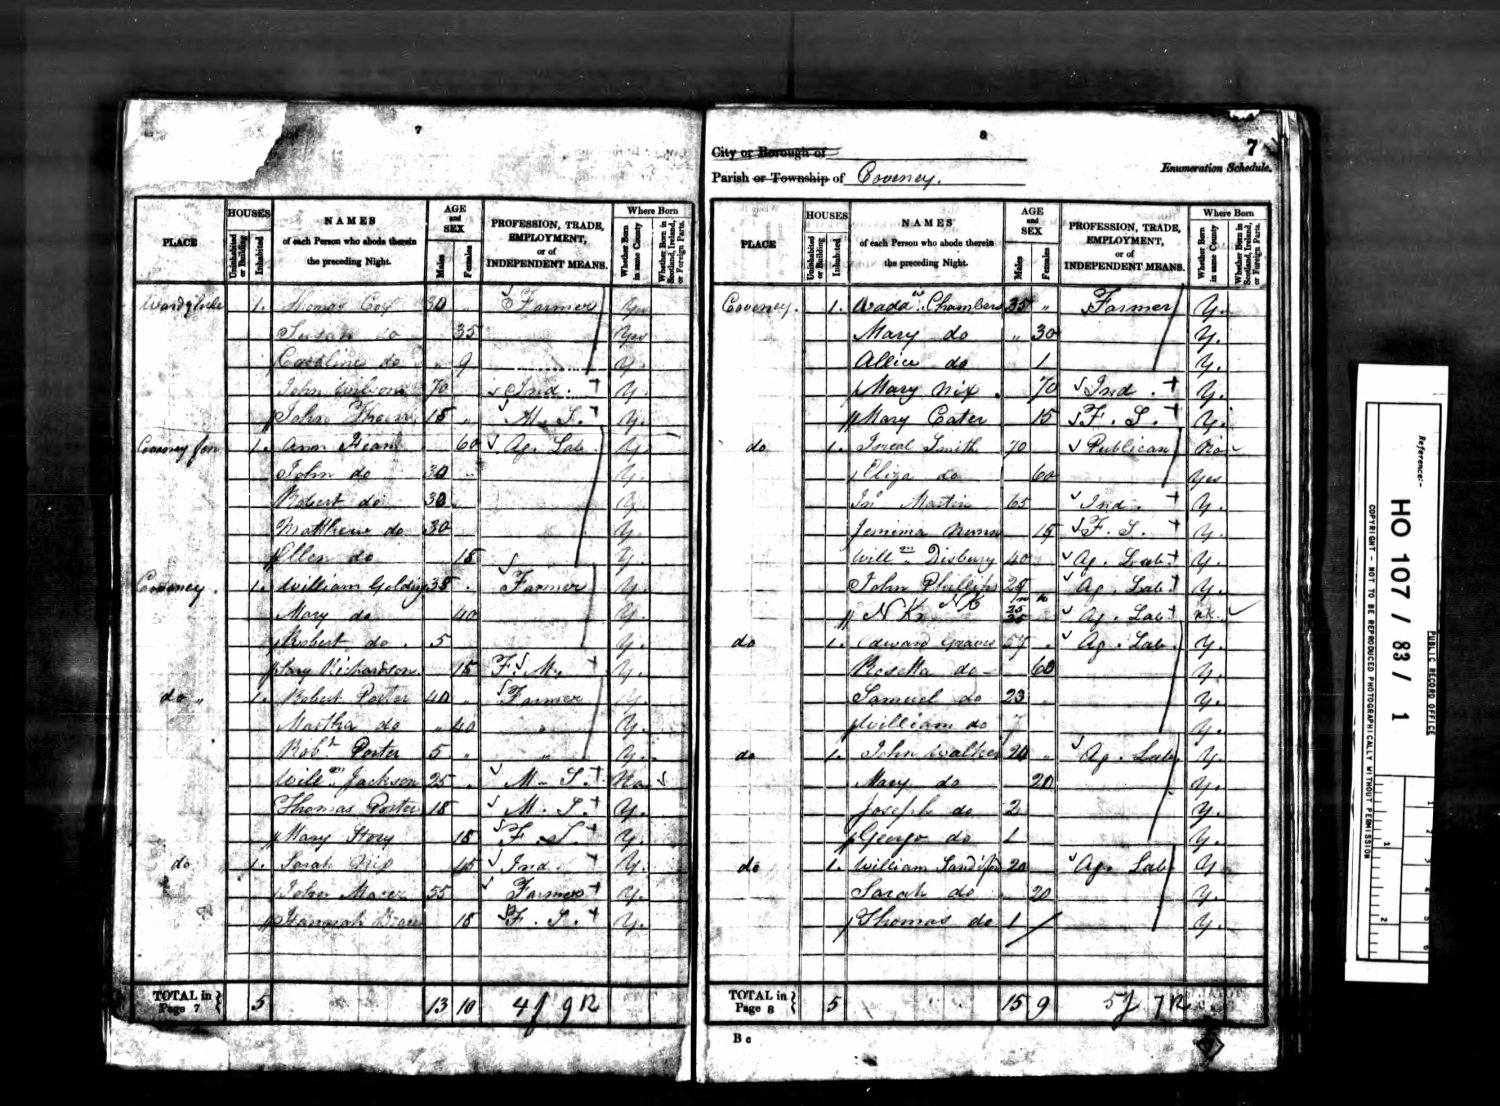 7
PLACE
HOUSES
Uninhabited or Building
Inhabited
NAMES
of each Person who abode therein
the preceding Night.
AGE
and
SEX
Males
Females
PROFESSION, TRADE,
EMPLOYMENT,
or of
INDEPENDENT MEANS.
Where Born
Whether Born in same County
Whether Born in Scotland, Ireland, or Foreign Parts.
1. Thomas Cox 30 Farmer Yes
Susan do 35 Yes
Caroline do 9 Y.
John 70 Ind. Y.
John 15 M. S. Y.
Coveney fen 1. Ann 60 Ag. Lab
John do 30 Y.
Robert do 30 Y.
Matthew do 30 Y.
Ellen do 18 Y.
Coveney. 1. William 35 Farmer Y.
Mary do 40 Y.
Robert do 5 Y.
Richardson 15 F. Y.
do 1. Robert Porter 40 Farmer Y.
Martha do 40 Y.
Robt Porter 5 Y.
Willm Jackson 25 M. S. No
Thomas Porter 18 M. S. Y.
Mary Story 18 F. S. Y.
do 1. Sarah Nix 45 Ind. Y.
John 55 Farmer Y.
Hannah 18 F. S. Y.
TOTAL in Page 7 5 13 10 4 f 9 R
8
7
City or Borough of
Parish or Township of Coveney.
Enumeration Schedule.
PLACE
HOUSES
Uninhabited or Building
Inhabited
NAMES
of each Person who abode therein
the preceding Night.
AGE
and
SEX
Males
Females
PROFESSION, TRADE,
EMPLOYMENT,
or of
INDEPENDENT MEANS.
Where Born
Whether Born in same County
Whether Born in Scotland, Ireland, or Foreign Parts.
Coveney. 1. Chambers 35 Farmer Y.
Mary do 30 Y.
Allice do 1 Y.
Mary Nix 70 Ind. Y.
Mary Cater 15 F. S. Y.
do 1. Smith 70 Publican No
Eliza do 60 Yes
Jno Martin 65 Ind. Y.
Jemima Nunn 15 F. S. Y.
Willm Disbury 40 Ag. Lab Y.
John Phillips Ag. Lab Y.
N K Ag. Lab n.k.
do 1. Edward Graves 57 Ag. Lab. Y.
Rosetta do 60 Y.
Samuel do 23 Y.
William do 7 Y.
do 1. John Walker 20 Ag. Lab Y.
Mary do 20 Y.
Joseph do 2 Y.
George do 1 Y.
do 1. William 20 Ag. Lab Y.
Sarah do 20 Y.
Thomas do 1 Y.
TOTAL in Page 8 5 15 9 5 f 7 R
B c
Reference:-
HO 107 / 83 / 1
PUBLIC RECORD OFFICE
COPYRIGHT - NOT TO BE REPRODUCED PHOTOGRAPHICALLY WITHOUT PERMISSION